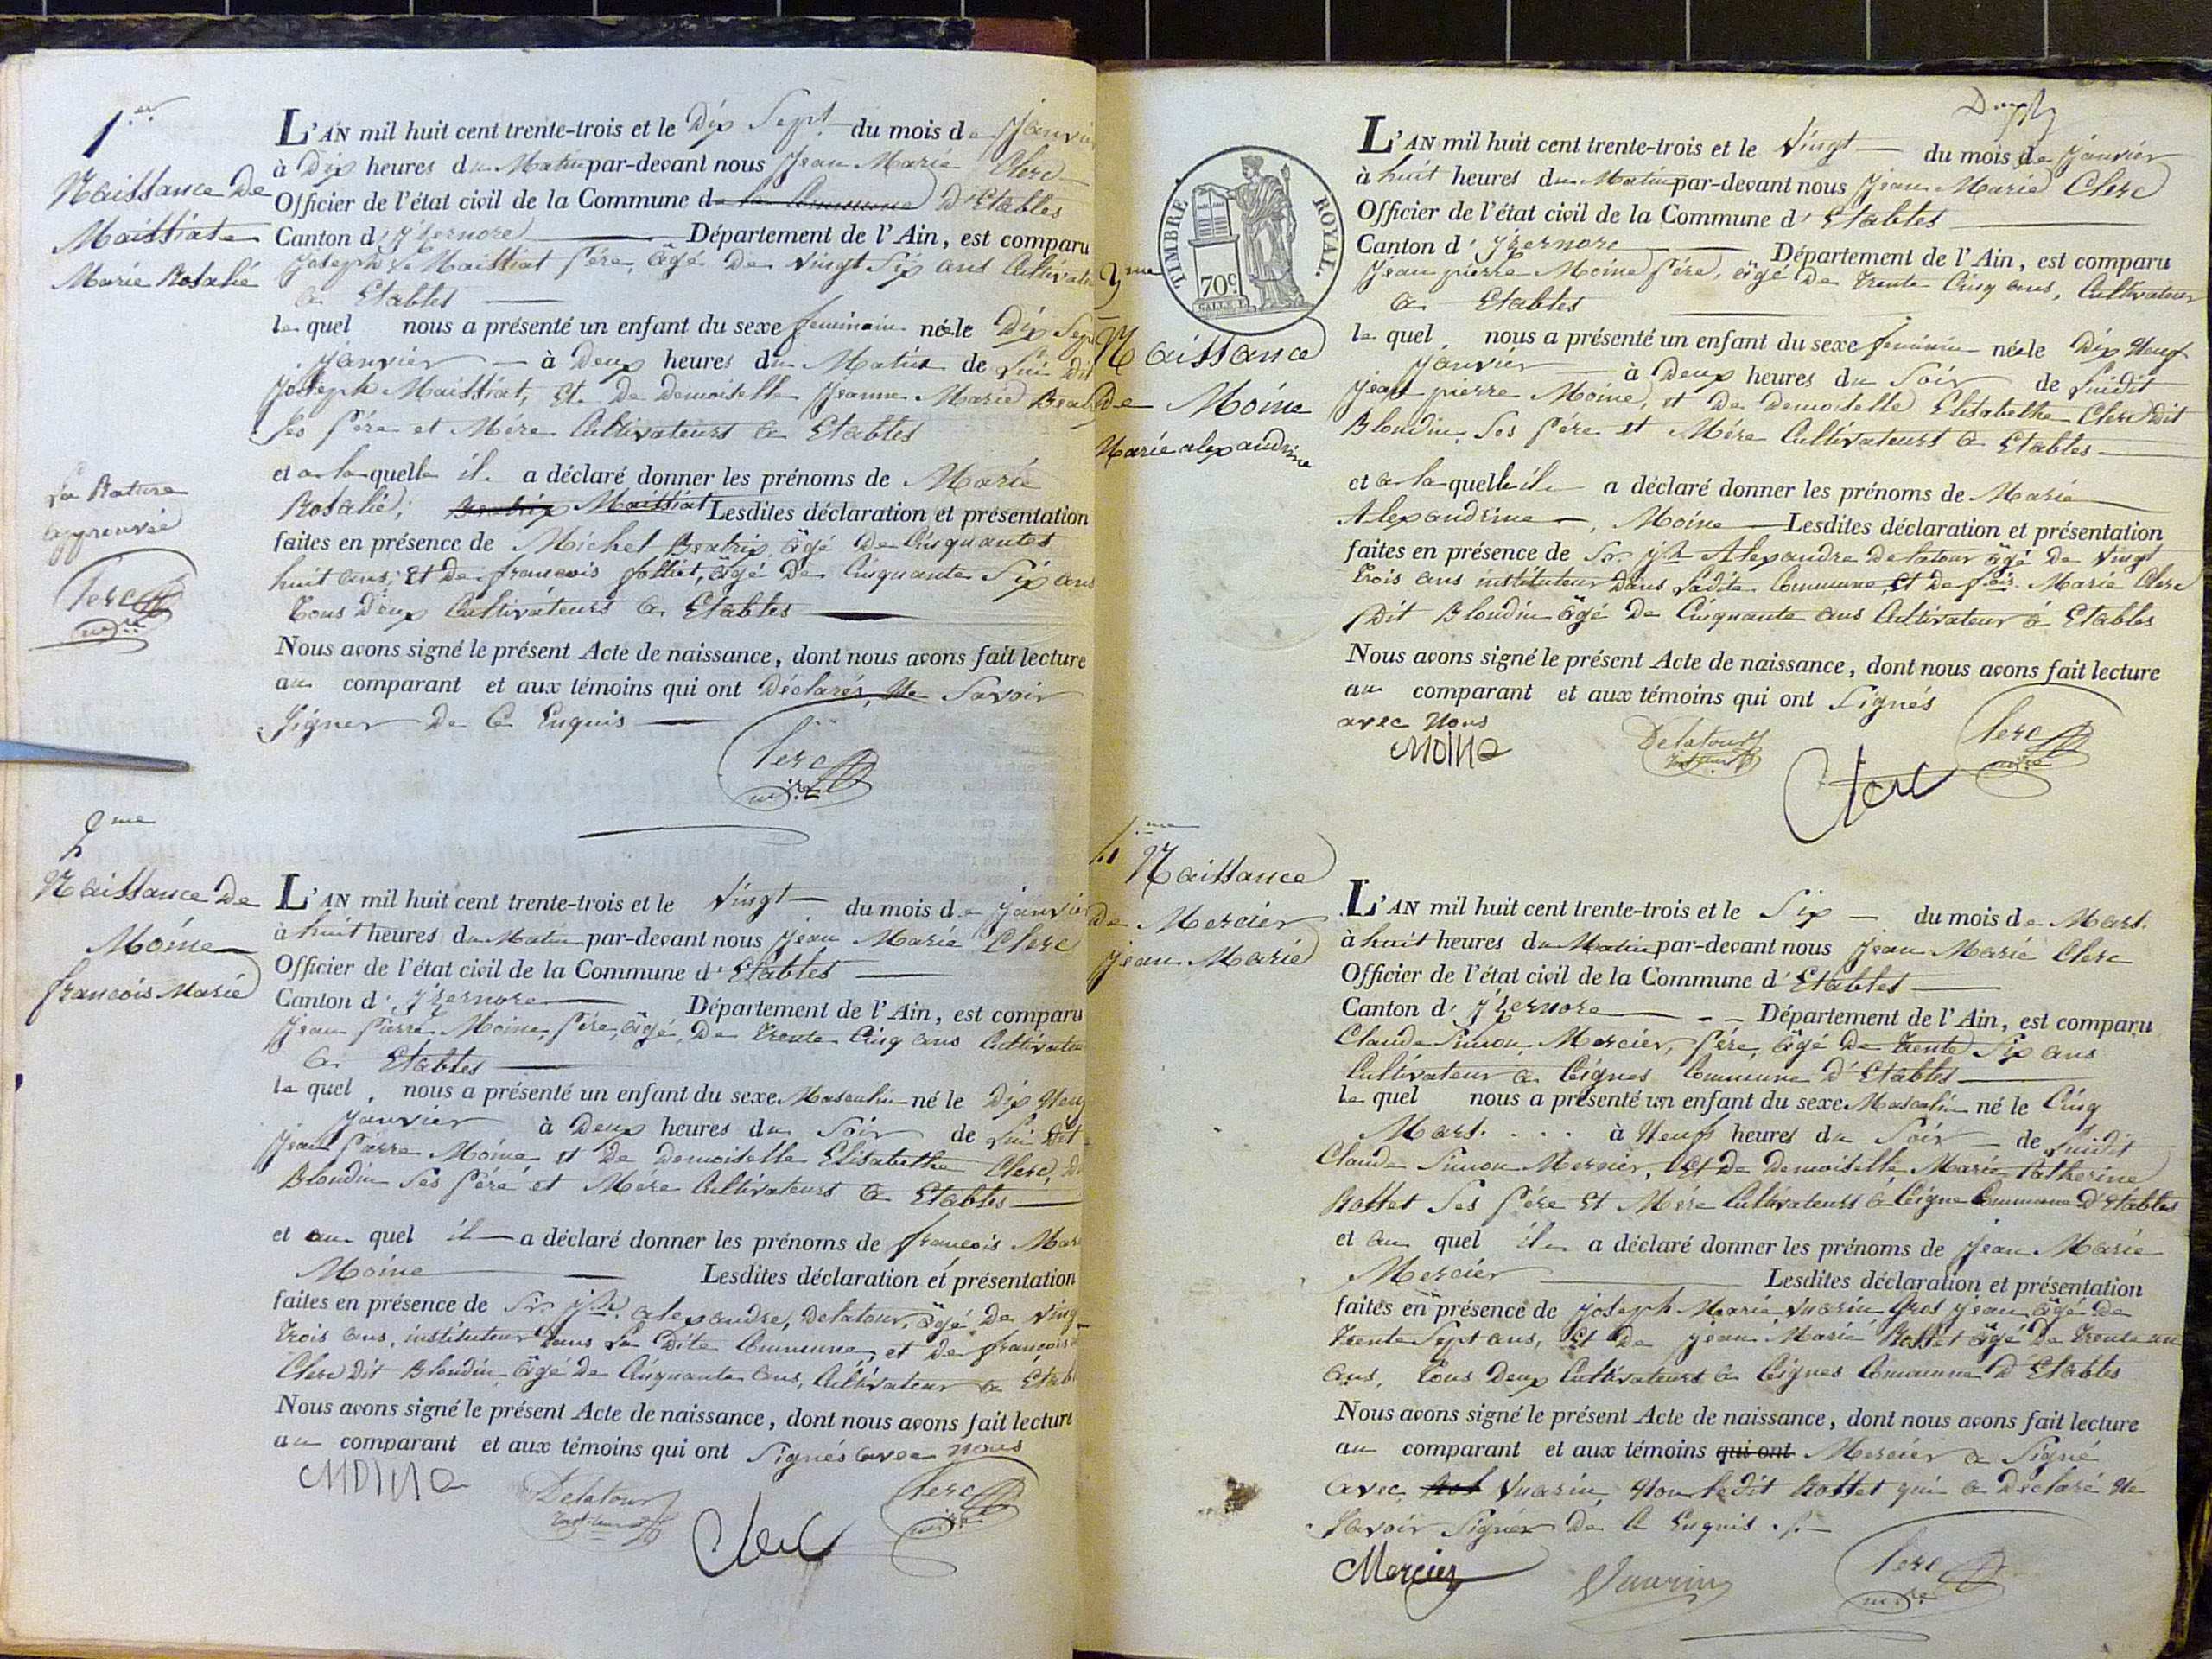 1.er
Naissance De
Maissiat
Marie Rosalie
L'AN mil huit cent trente-trois et le Dix Sept du mois de Janvier
à Dix heures du Matin par-devant nous Jean Marie Clerc
Officier de l'état civil de la Commune de la Commune D'Etables
Canton d'Yzernore Département de l'Ain, est comparu
Joseph Maissiat Père, âgé De vingt Six ans Cultivateur
à Etables
le quel nous a présenté un enfant du sexe feminin née le Dix Sept
Janvier à Deux heures du Matin de Lui Dit
Joseph Maissiat, Et De Demoiselle Jeanne Marie
Ses Père et Mère Cultivateurs à Etables
et a la quelle il a déclaré donner les prénoms de Marie
Rosalie; Beatrix Maissiat Lesdites déclaration et présentation
faites en présence de Michel Beatrix âgé De Cinquantes
huit ans; Et De francois folliet, âgé De Cinquante Six ans
tous Deux Cultivateurs à Etables
Nous avons signé le présent Acte de naissance, dont nous avons fait lecture
au comparant et aux témoins qui ont Déclarés Ne Savoir
Signer De Ce Enquis
Clerc
mire
La Rature
approuvée
Clerc
mire
2me
Naissance De
Moine
francois Marie
L'AN mil huit cent trente-trois et le Vingt du mois de Janvier
à huit heures du Matin par-devant nous Jean Marie Clerc
Officier de l'état civil de la Commune d'Etables
Canton d'Yzernore Département de l'Ain, est comparu
Jean Pierre Moine, Père, âgé, De trente Cinq ans Cultivateur
à Etables
le quel nous a présenté un enfant du sexe Masculin né le Dix Neuf
Janvier à Deux heures du Soir de Lui Dit
Jean Pierre Moine et De Demoiselle Elisabethe Clerc, Dit
Blondin Ses Père et Mère Cultivateurs à Etables
et au quel il a déclaré donner les prénoms de francois Marie
Moine Lesdites déclaration et présentation
faites en présence de Sr. Jph alexandre, Delatour, âgé De Vingt
trois ans, instituteur Dans La Dite Commune, et De francois
Clerc Dit Blondin âgé De Cinquante ans, Cultivateur à Etables
Nous avons signé le présent Acte de naissance, dont nous avons fait lecture
au comparant et aux témoins qui ont Signés avec nous
Moine
Delatour
Clerc
Clerc
mire
TIMBRE ROYAL.
70c
3me
Naissance
De Moine
Marie alexandrine
L'AN mil huit cent trente-trois et le Vingt du mois de Janvier
à huit heures du Matin par-devant nous Jean Marie Clerc
Officier de l'état civil de la Commune d'Etables
Canton d'Yzernore Département de l'Ain, est comparu
Jean pierre Moine Père, âgé De trente Cinq ans, Cultivateur
à Etables
le quel nous a présenté un enfant du sexe feminin née le Dix Neuf
Janvier à Deux heures du Soir de Luidit
Jean pierre Moine, et De Demoiselle Elisabethe Clerc Dit
Blondin, Ses Père et Mère Cultivateurs à Etables
et a la quelle il a déclaré donner les prénoms de Marie
Alexandrine, Moine Lesdites déclaration et présentation
faites en présence de Sr. Jph Alexandre Delatour âgé De Vingt
trois ans instituteur Dans Ladite Commune, Et De fois Marie Clerc
Dit Blondin âgé De Cinquante ans Cultivateur à Etables
Nous avons signé le présent Acte de naissance, dont nous avons fait lecture
au comparant et aux témoins qui ont Signés
avec Nous
Moine
Delatour
Clerc
Clerc
mire
4.me
Naissance
De Mercier
Jean Marie
L'AN mil huit cent trente-trois et le Six du mois de Mars.
à huit heures du Matin par-devant nous Jean Marie Clerc
Officier de l'état civil de la Commune d'Etables
Canton d'Yzernore Département de l'Ain, est comparu
Claude Simon, Mercier, Père, âgé De trente Six ans
Cultivateur à Ceignes Commune D'Etables
le quel nous a présenté un enfant du sexe Masculin né le Cinq
Mars. à Neuf heures du Soir de Luidit
Claude Simon Mercier, Et De Demoiselle, Marie Catherine
Rosset Ses Père Et Mère Cultivateurs à Ceigne Commune D'Etables
et au quel il a déclaré donner les prénoms de Jean Marie
Mercier Lesdites déclaration et présentation
faites en présence de Joseph Marie Vuarin Gros Jean âgé De
trente Sept ans, Et De Jean Marie Rosset âgé De trente un
ans, tous Deux Cultivateurs à Ceignes Commune D'Etables
Nous avons signé le présent Acte de naissance, dont nous avons fait lecture
au comparant et aux témoins qui ont Mercier a Signé
avec Vuarin, Non Ledit Rosset qui a Déclaré Ne
Savoir Signer De Ce Enquis
Mercier
Vuarin
Clerc
mire